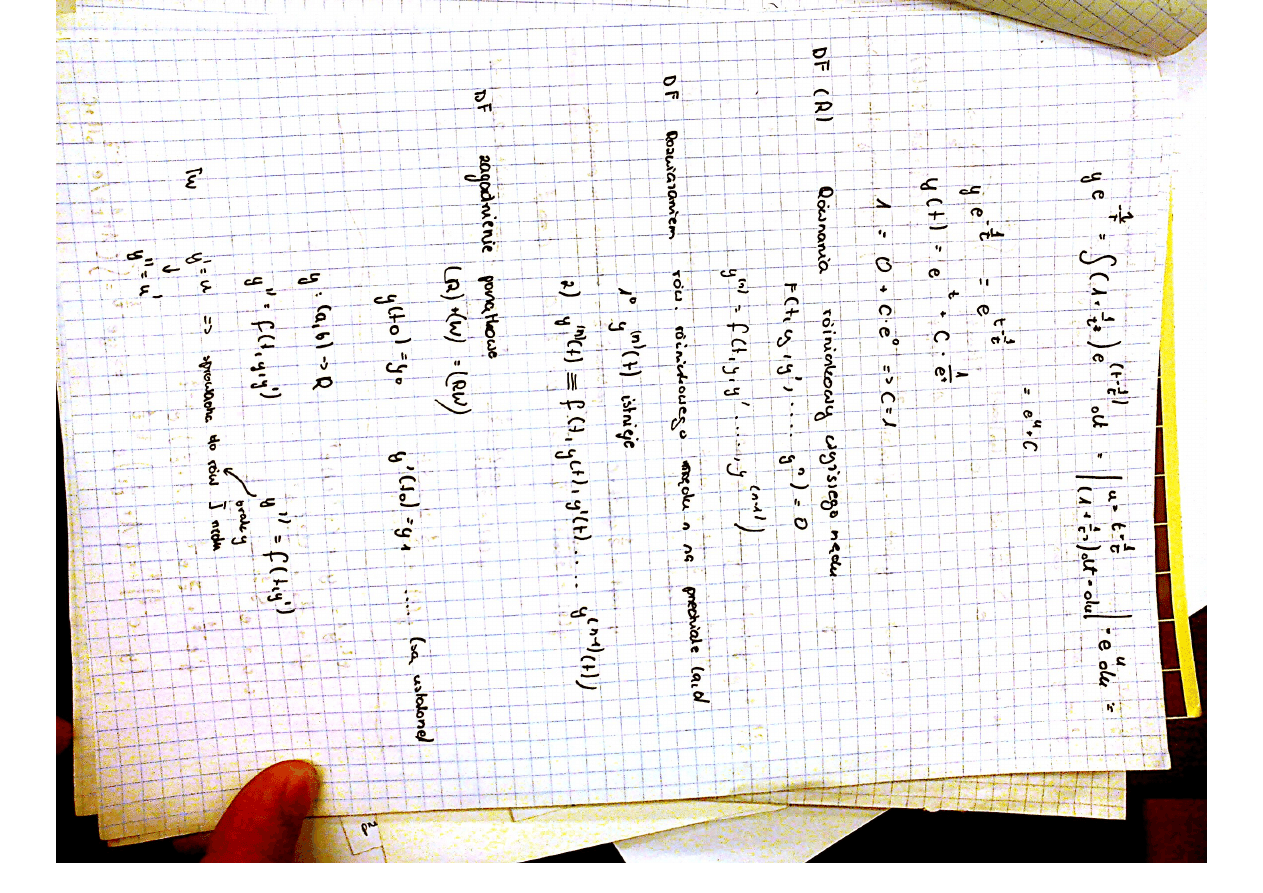 y e^{-1/t} = ∫ (1+1/t²) e^{(t-1/t)} dt = | u = t-1/t (1+1/t²) dt = du | = e^u du =
= e^u + C
y e^{-1/t} = e^{t-1/t}
y(t) = e^t + C · 1/e^t
1 = 0 + C · e^0 => C = 1
DF (R) Równania różniczkowy wyższego rzędu
F(t, y, y', ..... y^n) = 0
y^(n) = f(t, y, y' ....., y^(n-1))
DF Rozwiązaniem rów. różniczkowego rzędu n na przedziale (a,b)
1° y^(n)(t) istnieje
2) y^(n)(t) ≡ f(t, y(t), y'(t) ..... y^(n-1)(t))
DF zagadnienie początkowe
(R)+(W) = (RW)
y(t0) = y0 y'(t0) = y1 ..... (są ustalone)
y : (a,b) -> R
y'' = f(t, y, y') y'' = f(t, y')
brak y
Tw y' = u => sprowadza do rów I rzędu
↓
y'' = u'